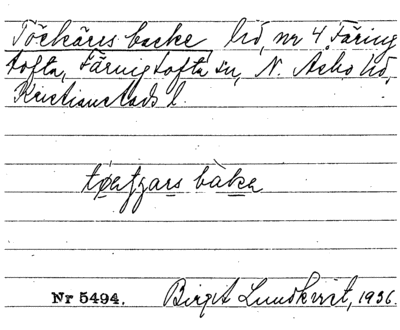 Töckares backe hd, nr 4 Färing
tofta, Färingtofta sn, N. Åsbo hd,
Kristianstads l.
bàkɐ
Nr 5494. Birgit Lundkvist, 1936.